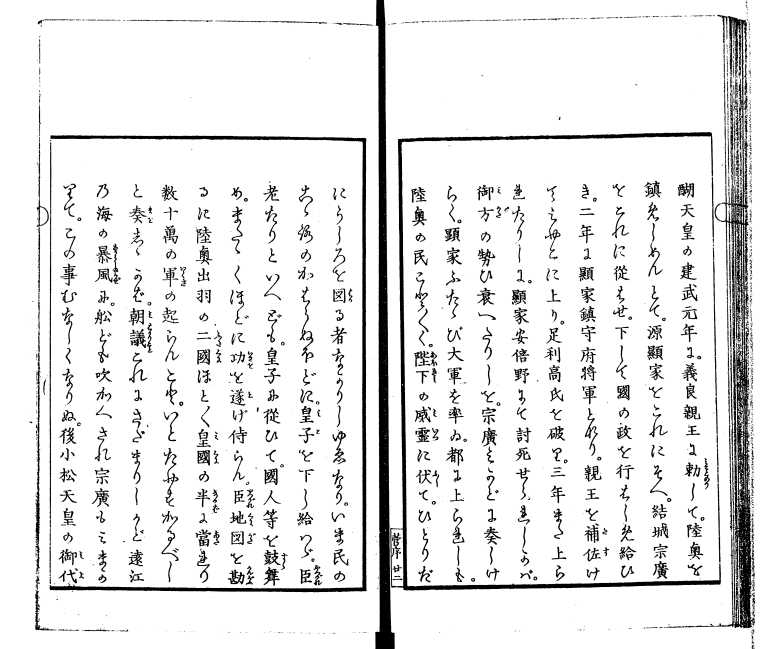 醐天皇の建武元年に。義良親王に勅して。陸奥を
鎮めしめんとて。源顯家をこれにそへ。結城宗廣
をこれに從はせ。下して國の政を行はしめ給ひ
き。二年に顯家鎮守府將軍となり。親王を補佐け
てみやこに上り。足利高氏を破る。三年また上ら
れたりしに。顯家安倍野にて討死せられしかば。
御方の勢ひ衰へたりしを。宗廣みかどに奏しけ
らく。顯家ふたゝび大軍を率ゐ。都に上られしも。
陸奥の民こと〴〵く。陛下の威靈に伏て。ひとりだ
にうしろを圖る者なかりしゆゑなり。いま民の
こゝろのかはらぬほどに。皇子を下し給へ。臣
老たりといへども。皇子に從ひて。國人等を鼓舞
め。またくほどに功を遂げ侍らん。臣地図を勘
るに陸奥出羽の二國ほとく皇國の半に當れり
数十萬の軍の起らんこと。いとたやすかるべし
と奏しゝかば。朝議これにさだまりしかど遠江
乃海の暴風に。船ども吹かへされ宗廣もみまか
りて。この事むなしくなりぬ。後小松天皇の御代
菅序 廿二